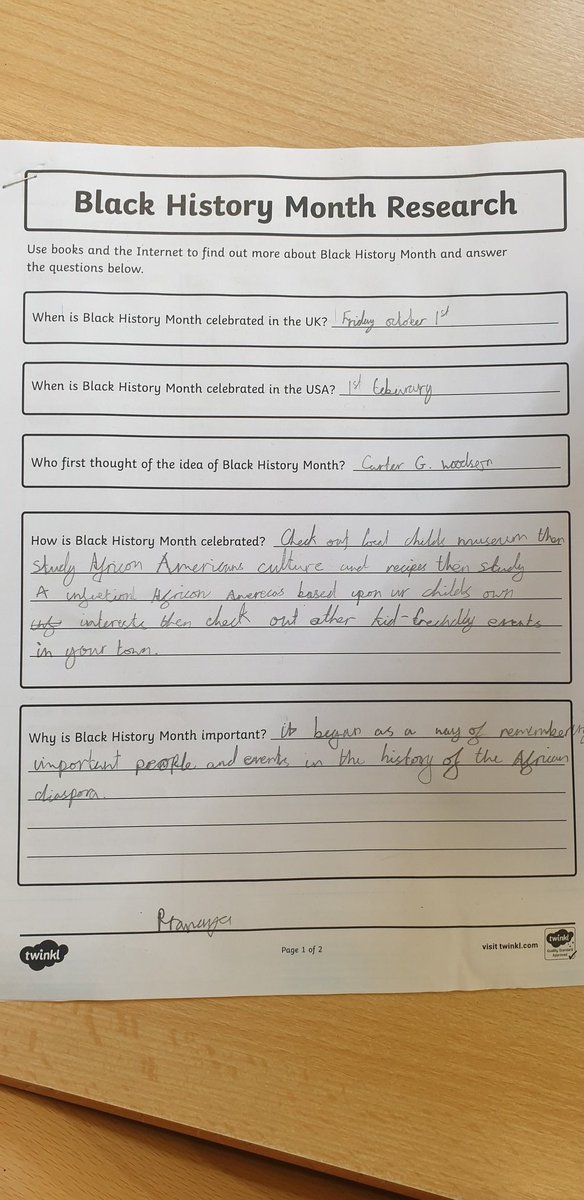 Black History Month Research
Use books and the Internet to find out more about Black History Month and answer
the questions below.
When is Black History Month celebrated in the UK? Friday october 1st
When is Black History Month celebrated in the USA? 1st
Who first thought of the idea of Black History Month? Carter G. woodson
How is Black History Month celebrated? Check out local childs museum then
study African Americans culture and recipes then study
A African Americas based upon ur childs own
interests then check out other kid-freindly events
in your town.
Why is Black History Month important? it began as a way of remembering
important people and events in the history of the African
diaspora.
twinkl
Page 1 of 2
visit twinkl.com
twinkl
Quality Standard
Approved